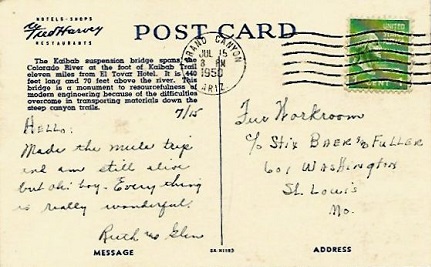 HOTELS · SHOPS
Fred Harvey
RESTAURANTS
POST CARD
The Kaibab suspension bridge spans the
Colorado River at the foot of Kaibab Trail
eleven miles from El Tovar Hotel. It is 440
feet long and 70 feet above the river. This
bridge is a monument to resourcefulness of
modern engineering because of the difficulties
overcome in transporting materials down the
steep canyon trails.
GRAND CANYON
JUL 15
8 PM
1950
ARIZ.
UNITED
7/15
Hello:
Made the mule trip
and am still alive
but oh! boy. Everything
is really wonderful.
Ruth &
Fur Workroom
c/o Stix Baer & Fuller
601 Washington
St. Louis
Mo.
MESSAGE
ADDRESS